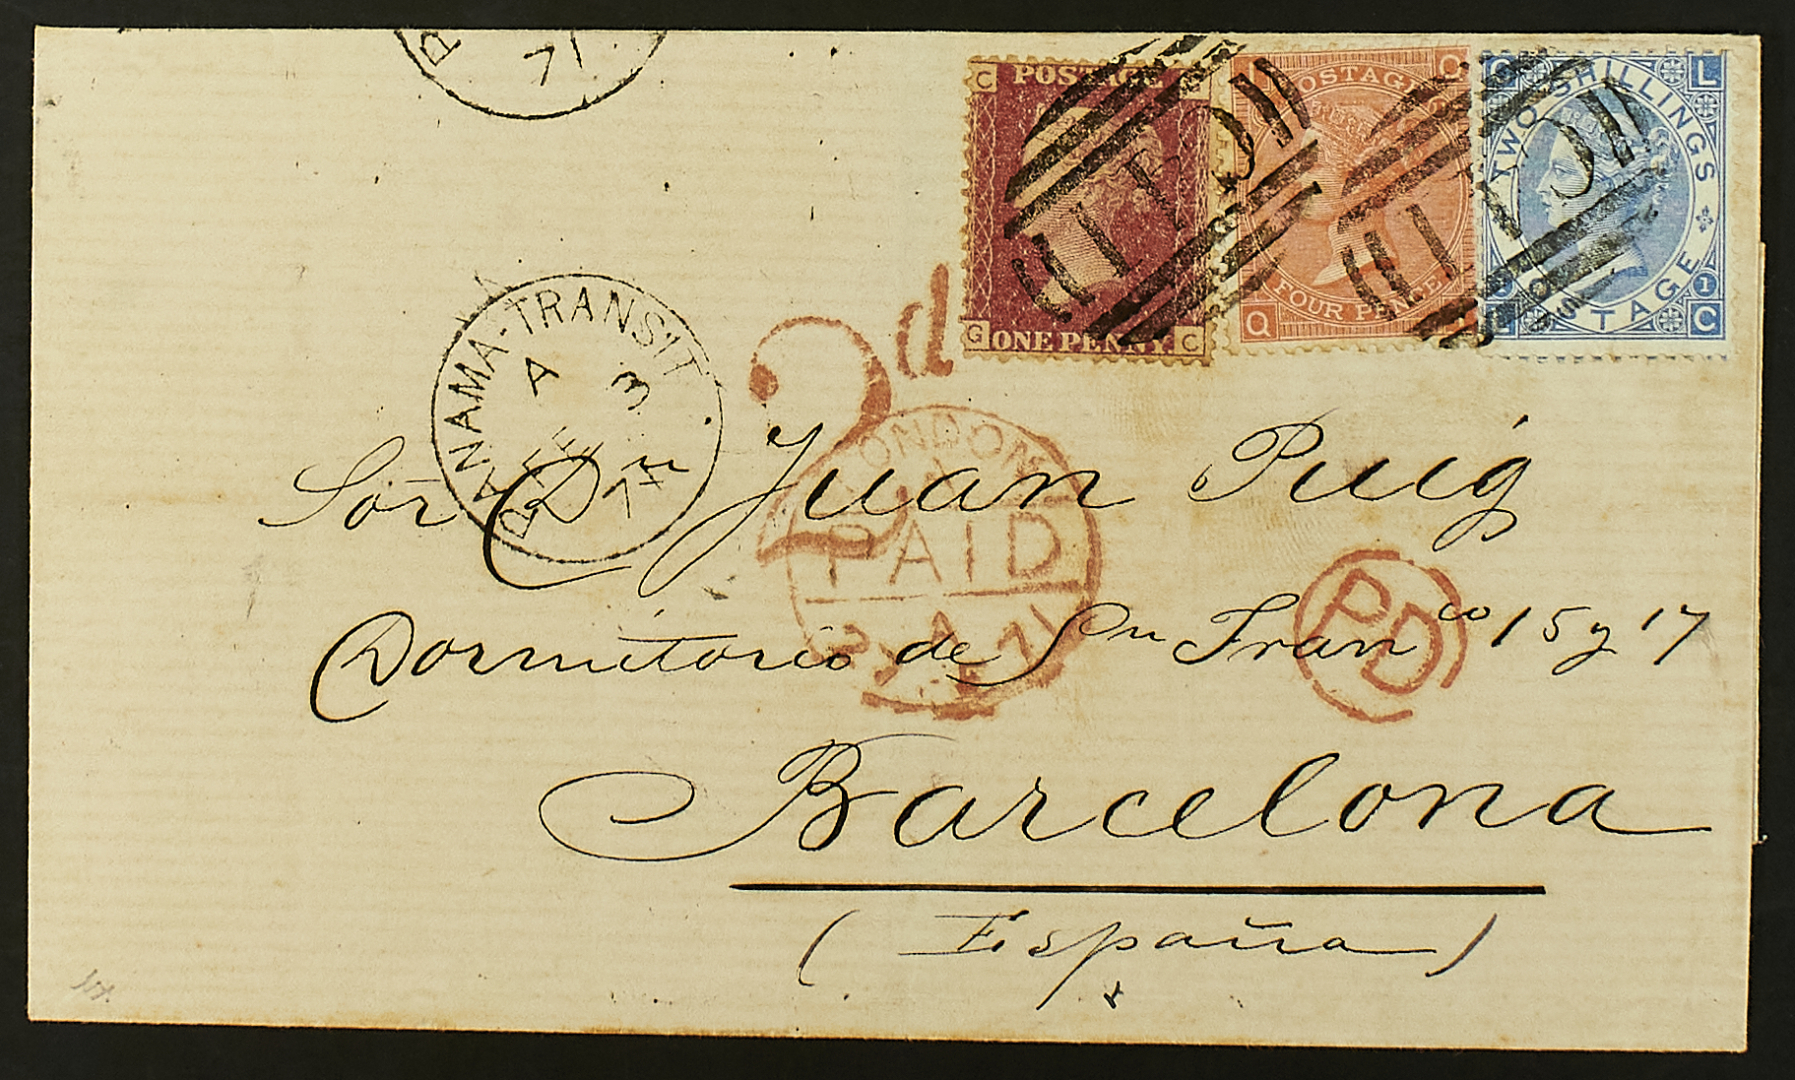 P
71
C POSTAGE
G ONE PENNY. C
POSTAGE Q
Q FOUR PENCE
C TWO SHILLINGS L
L POSTAGE 1 C
PANAMA-TRANSIT
A
FE 3
71
2d
LONDON
PAID
71
PD
Sor Dn Juan Puig
Dormitorio de Sn Franco 15 y 17
Barcelona
(España)